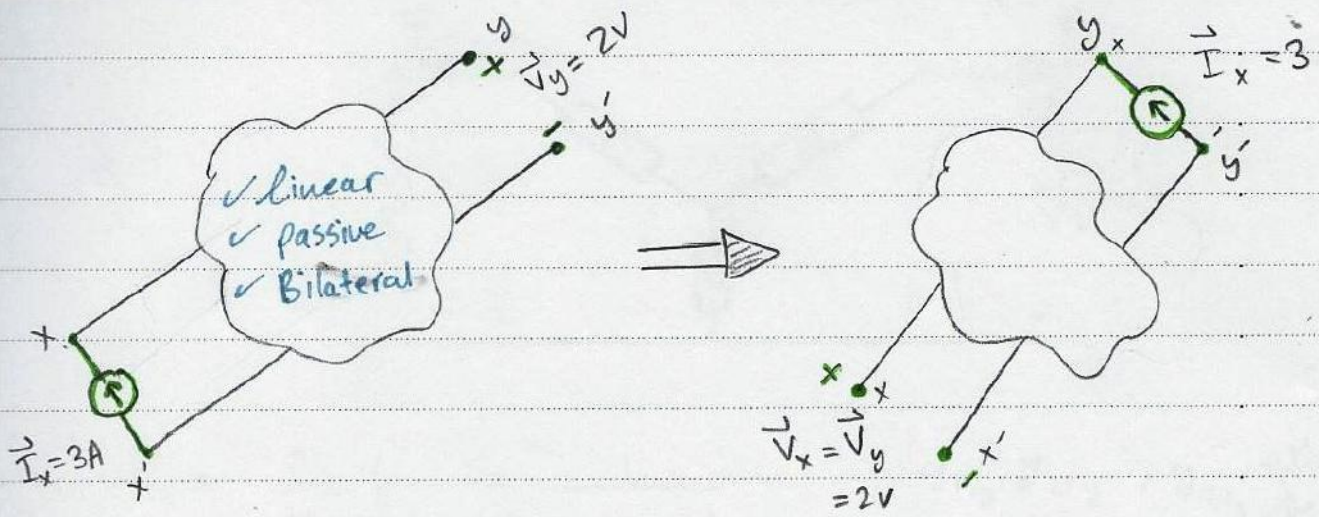 y
x V⃗y = 2V
y'
✓ linear
✓ passive
✓ Bilateral
x
I⃗x = 3A
x'
y x
I⃗x = 3
y'
x x
V⃗x = V⃗y
= 2V
x'